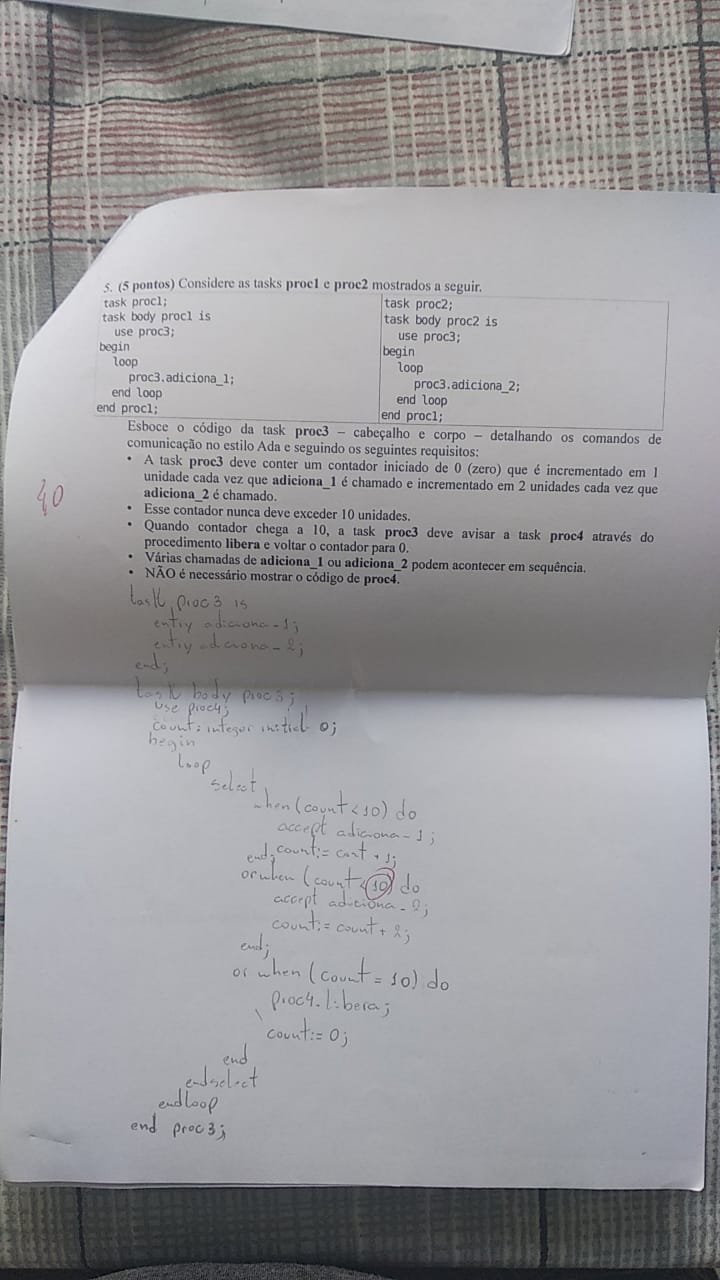 5. (5 pontos) Considere as tasks proc1 e proc2 mostrados a seguir.
task proc1;
task body proc1 is
use proc3;
begin
loop
proc3.adiciona_1;
end loop
end proc1;
task proc2;
task body proc2 is
use proc3;
begin
loop
proc3.adiciona_2;
end loop
end proc1;
Esboce o código da task proc3 – cabeçalho e corpo – detalhando os comandos de
comunicação no estilo Ada e seguindo os seguintes requisitos:
• A task proc3 deve conter um contador iniciado de 0 (zero) que é incrementado em 1
unidade cada vez que adiciona_1 é chamado e incrementado em 2 unidades cada vez que
adiciona_2 é chamado.
• Esse contador nunca deve exceder 10 unidades.
• Quando contador chega a 10, a task proc3 deve avisar a task proc4 através do
procedimento libera e voltar o contador para 0.
• Várias chamadas de adiciona_1 ou adiciona_2 podem acontecer em sequência.
• NÃO é necessário mostrar o código de proc4.
40
task proc3 is
entry adiciona-1;
entry adiciona-2;
end;
task body proc3;
use proc4;
count: integer initial 0;
begin
loop
select
when (count < 10) do
accept adiciona-1;
count:= cont + 1;
end;
or when (count < 10) do
accept adiciona-2;
count:= count + 2;
end;
or when (count = 10) do
proc4.libera;
count:= 0;
end
endselect
endloop
end proc3;